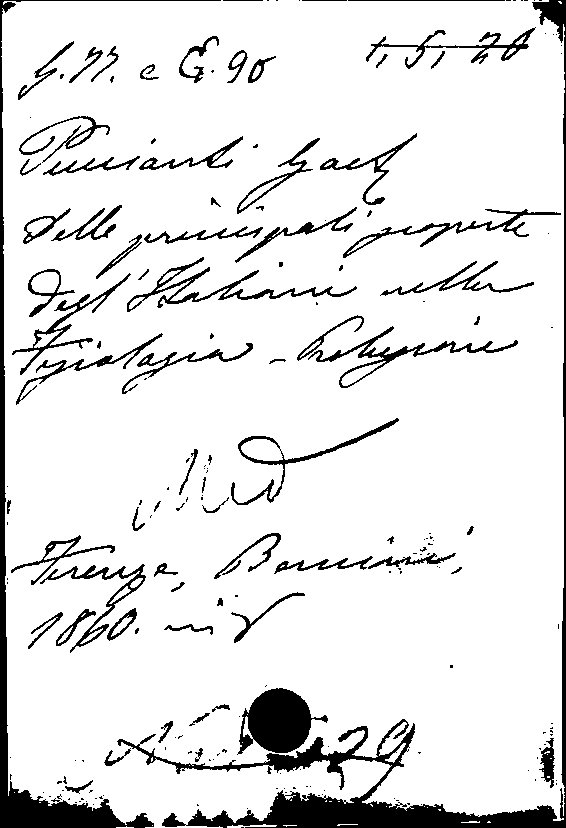 G. 77. e G. 90 1, 5, 20
Puccianti Gaet
Delle principali scoperte
degl'Italiani nella
Fisiologia - Prolusione
Med
Firenze, Bencini,
1860. in 8
29